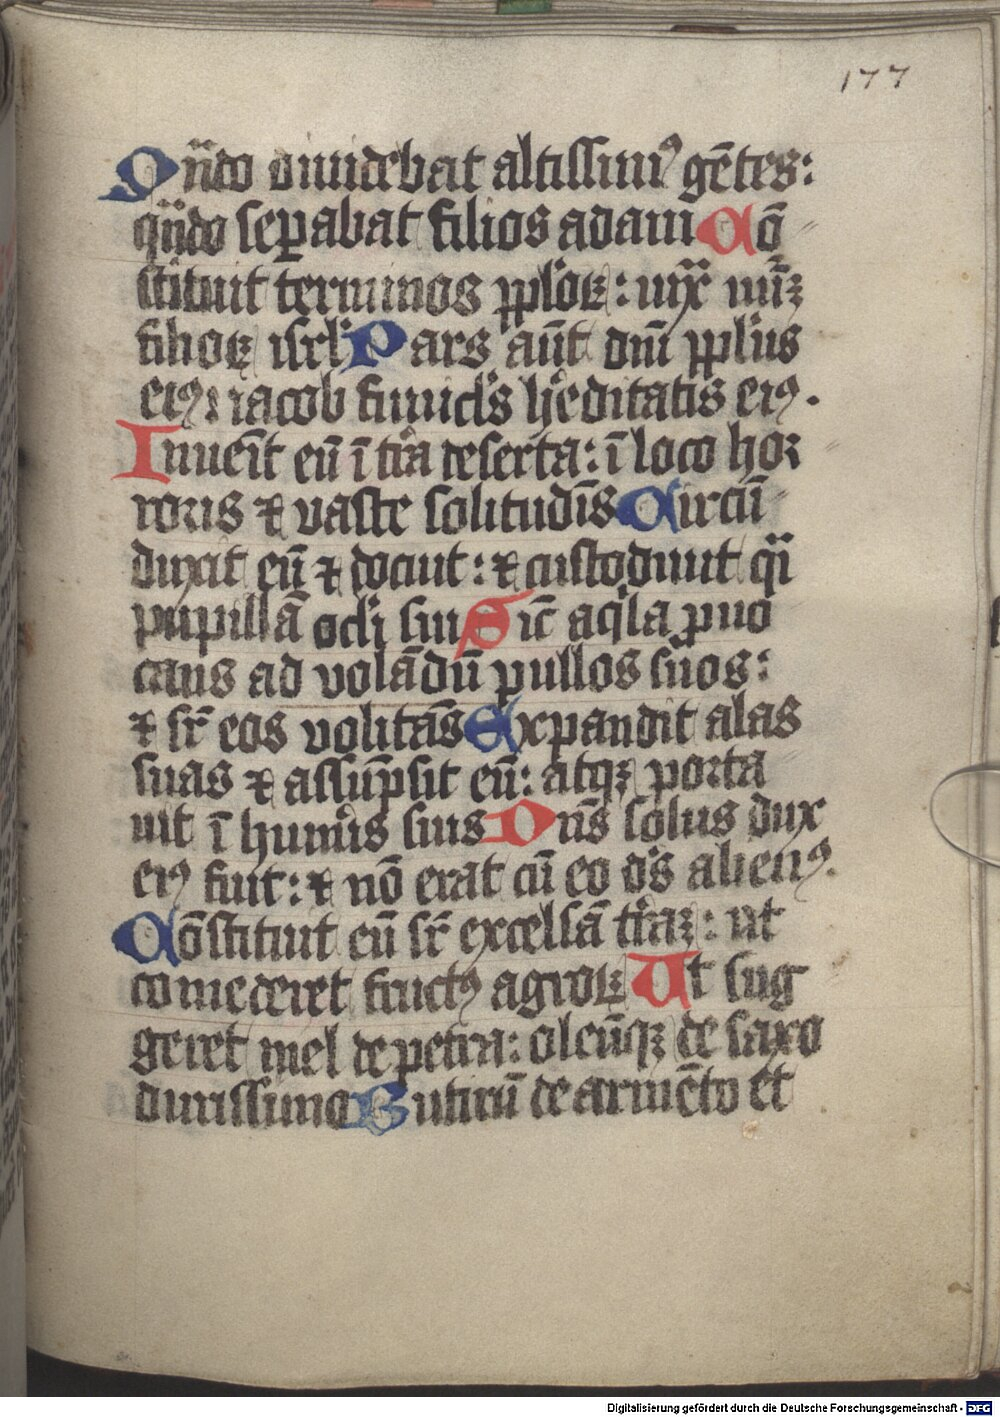 177
Qn̄do diuidebat altissimꝰ gētes:
qn̄do sepabat filios adam Cō
stituit terminos pploꝝ: iux̄ nūꝝ
filioꝝ isrl' Pars aūt dnī ppl'us
eiꝰ: iacob funicl's heditatis eiꝰ.
Inuēit eū ī tra deserta: ī loco hor
roris ⁊ vaste solitudīs Circū
duxit eū ⁊ docuit: ⁊ custodiuit qi
pupillā ocl'i sui Sic̄ aqila ꝓuo
cans ad volādū pullos suos:
⁊ sr̄ eos volitās Expandit alas
suas ⁊ assūpsit eū: atqꝫ porta
uit ī humis suis Dn̄s solus dux
eiꝰ fuit: ⁊ nō erat cū eo ds alienꝰ.
Cōstituit eū sr̄ excelsā traꝫ: ut
comederet fructꝰ agroꝝ Ut sug
geret mel de petra: oleūqꝫ de saxo
durissimo Butirū de armēto et
Digitalisierung gefördert durch die Deutsche Forschungsgemeinschaft - DFG